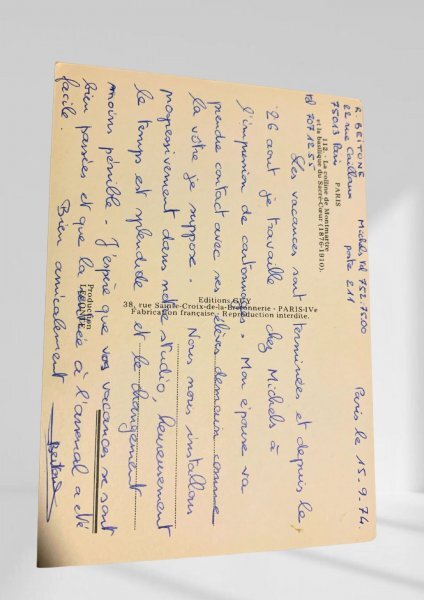 R. BEITONE Michels tel 752-7500 Paris le 15-9-74.
22 rue Cailleux poste 211
75013 Paris
tel 707 12 55
PARIS
112. - La colline de Montmartre
et la basilique du Sacré-Cœur (1876-1910).
Les vacances sont terminées et depuis le
26 août je travaille chez Michels à
l'impression de cartonnages. Mon épouse va
prendre contact avec ses élèves demain comme
la vôtre je suppose. Nous nous installons
progressivement dans notre studio, heureusement
le temps est splendide et le changement
moins pénible. J'espère que vos vacances se sont
bien passées et que la rentrée à l'arsenal a été
facile. Bien amicalement
Beitone
Editions GUY
38, rue Sainte-Croix-de-la-Bretonnerie - PARIS-IVe
Fabrication française - Reproduction interdite.
Production